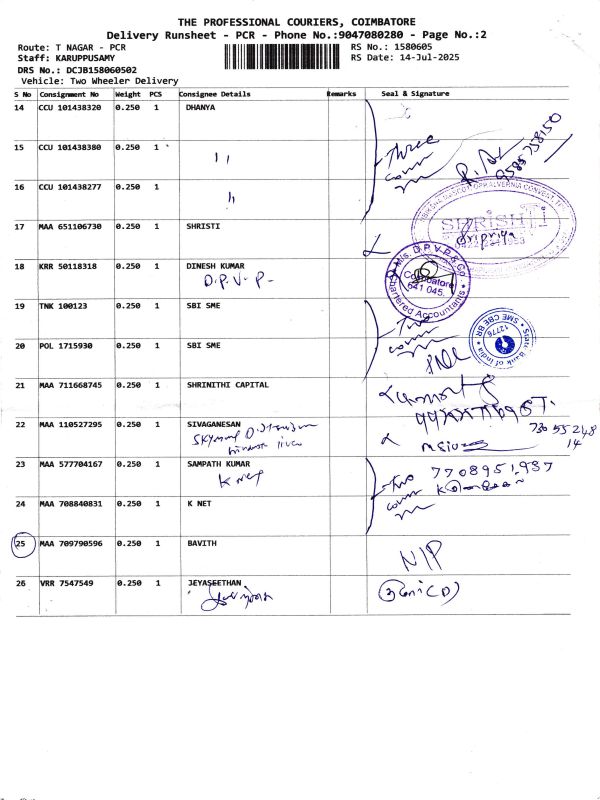 THE PROFESSIONAL COURIERS, COIMBATORE
Delivery Runsheet - PCR - Phone No.:9047080280 - Page No.:2
Route: T NAGAR - PCR RS No.: 1580605
Staff: KARUPPUSAMY RS Date: 14-Jul-2025
DRS No.: DCJB158060502
Vehicle: Two Wheeler Delivery
S No Consignment No Weight PCS Consignee Details Remarks Seal & Signature
14 CCU 101438320 0.250 1 DHANYA
15 CCU 101438380 0.250 1 11
Three
9585758150
16 CCU 101438277 0.250 1 11
17 MAA 651106730 0.250 1 SHRISTI
SHRISHTI
Sripriya
18 KRR 50118318 0.250 1 DINESH KUMAR
D.P.V.P-
M/s. D.P.V.P & Co
Coimbatore
641 045.
Chartered Accountants
19 TNK 100123 0.250 1 SBI SME
Two
State Bank of India
SME CBE BR
12776
20 POL 1715930 0.250 1 SBI SME
21 MAA 711668745 0.250 1 SHRINITHI CAPITAL
22 MAA 110527295 0.250 1 SIVAGANESAN
23 MAA 577704167 0.250 1 SAMPATH KUMAR
K net
Two
7708951937
24 MAA 708840831 0.250 1 K NET
25 MAA 709790596 0.250 1 BAVITH
N/P
26 VRR 7547549 0.250 1 JEYASEETHAN